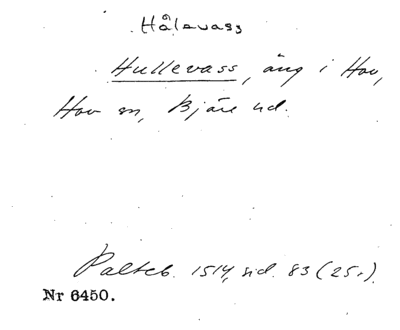 Hålevass
Hullevass, äng i Hov,
Hov sn, Bjäre hd.
Palteb. 1514, sid. 83 (25r).
Nr 6450.